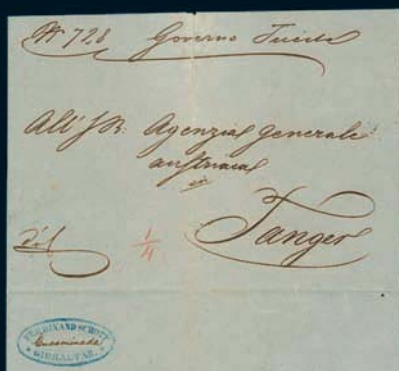 No 728 Governo Trieste
All' I.R. Agenzia generale
austriaca
in
Tanger
1/4
FERDINAND SCHOTT
Encaminada
GIBRALTAR.